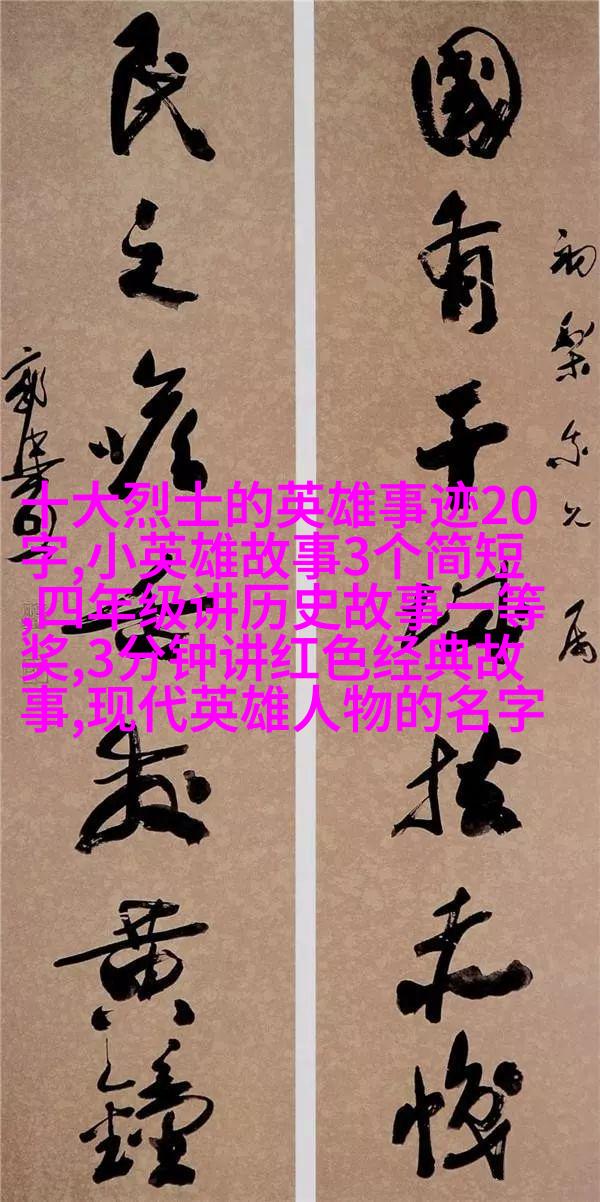 國有干城扶赤幟
民之喉舌发黄鐘
十大烈士的英雄事迹20
字,小英雄故事3个简短
,四年级讲历史故事一等
奖,3分钟讲红色经典故
事,现代英雄人物的名字